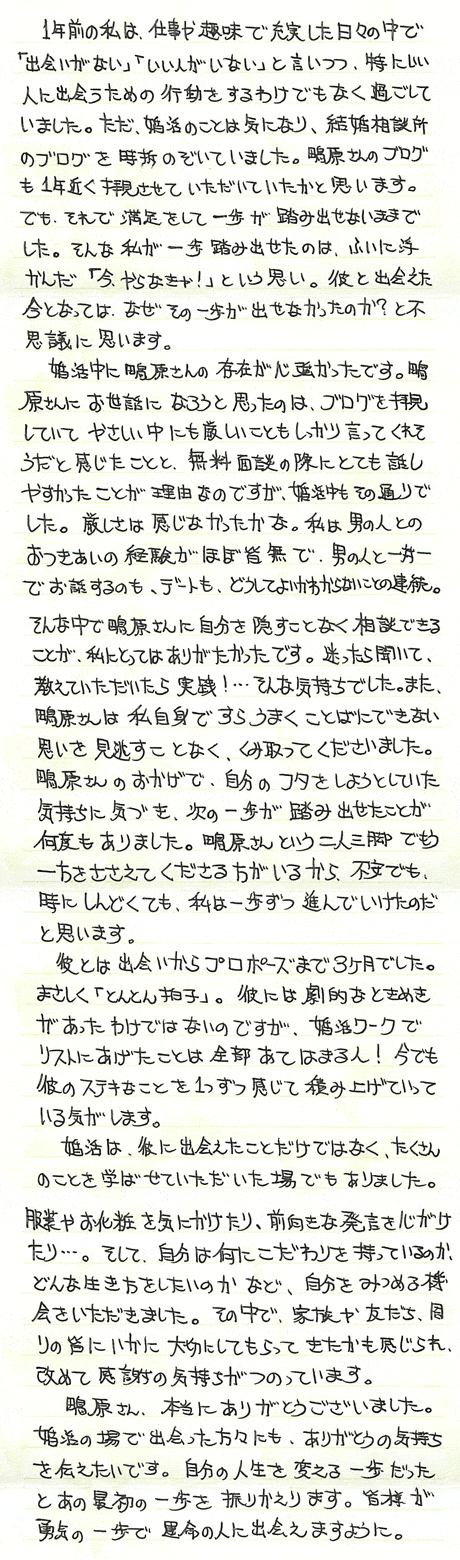 1年前の私は、仕事や趣味で充実した日々の中で
「出会いがない」「いい人がいない」と言いつつ、特に新しい
人に出会うための行動をするわけでもなく過ごして
いました。ただ、婚活のことは気になり、結婚相談所
のブログを時折のぞいていました。鴨原さんのブログ
も1年近く拝見させていただいていたかと思います。
でも、それで満足をして一歩が踏み出せないままで
した。そんな私が一歩踏み出せたのは、ふいに浮
かんだ「今、やらなきゃ!」という思い。彼と出会えた
今となっては、なぜその一歩が出せなかったのか?と不
思議に思います。
婚活中に鴨原さんの存在が心強かったです。鴨
原さんにお世話になろうと思ったのは、ブログを拝見
していてやさしい中にも厳しいこともしっかり言ってくれそ
うだと感じたことと、無料面談の際にとても話し
やすかったことが理由なのですが、婚活中もその通りで
した。厳しさは感じなかったかな。私は男の人との
おつきあいの経験がほぼ皆無で、男の人と一対一
でお話するのも、デートも、どうしてよいかわからないことの連続。
そんな中で鴨原さんに自分を隠すことなく相談できる
ことが、私にとってはありがたかったです。迷ったら聞いて、
教えていただいたら実践!…そんな気持ちでした。また、
鴨原さんは私自身ですらうまくことばにできない
思いを見逃すことなく、くみ取ってくださいました。
鴨原さんのおかげで、自分のフタをしようとしていた
気持ちに気づき、次の一歩が踏み出せたことが
何度もありました。鴨原さんという二人三脚でもう
一方をささえてくださる方がいるから、不安でも、
時にしんどくても、私は一歩ずつ進んでいけたのだ
と思います。
彼とは出会いからプロポーズまで3ヶ月でした。
まさしく「とんとん拍子」。彼には劇的なときめき
があったわけではないのですが、婚活ワークで
リストにあげたことは全部あてはまる人!今でも
彼のステキなことを1つずつ感じて積み上げていって
いる気がします。
婚活は、彼に出会えたことだけではなく、たくさん
のことを学ばせていただいた場でもありました。
服装やお化粧を気にかけたり、前向きな発言を心がけ
たり…。そして、自分は何にこだわりを持っているのか、
どんな生き方をしたいのかなど、自分をみつめる機
会をいただきました。その中で、家族や友だち、周
りの皆にいかに大切にしてもらってきたかも感じられ、
改めて感謝の気持ちがつのっています。
鴨原さん、本当にありがとうございました。
婚活の場で出会った方々にも、ありがとうの気持ち
を伝えたいです。自分の人生を変える一歩だった
とあの最初の一歩を振りかえります。皆様が
勇気の一歩で運命の人に出会えますように。